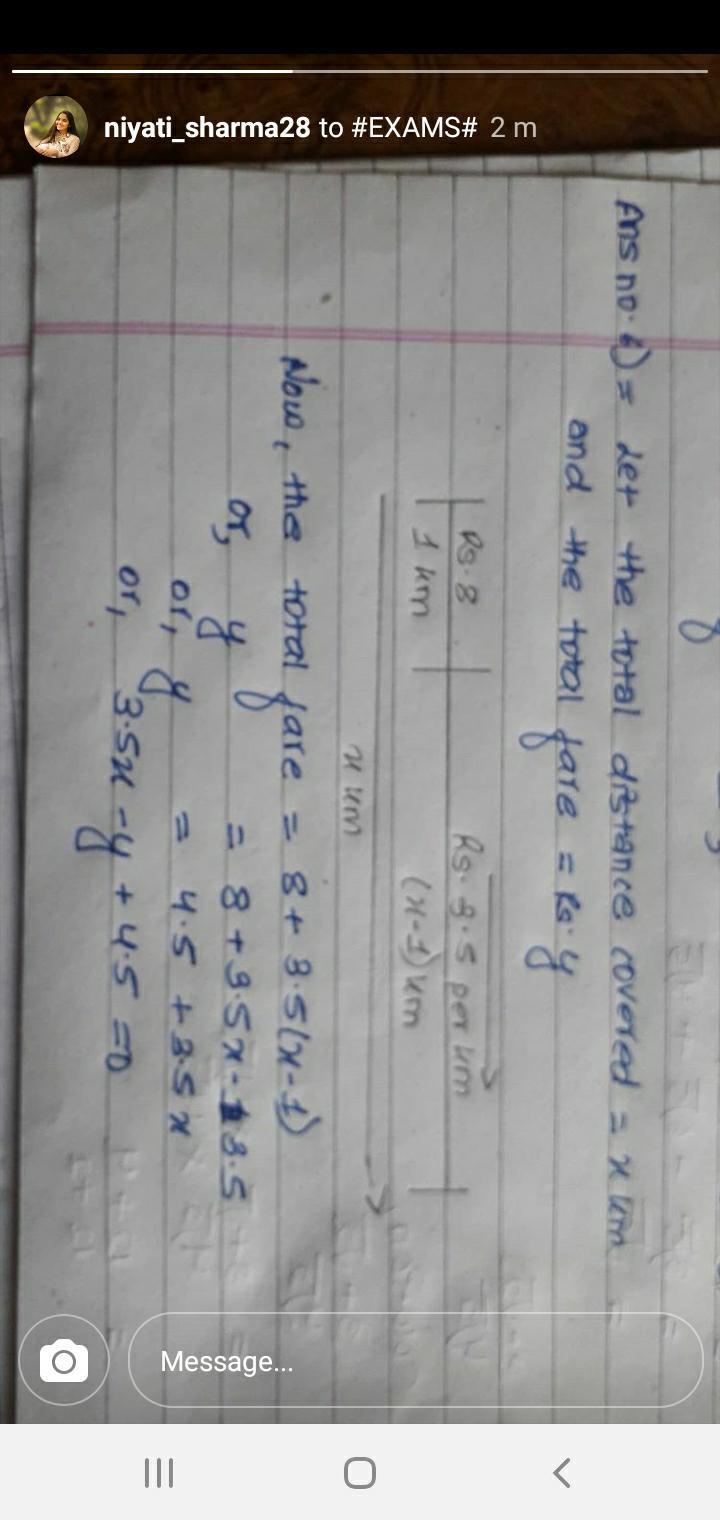 niyati_sharma28 to #EXAMS# 2 m
Ans no. 6) = Let the total distance covered = x km
and the total fare = Rs. y
Rs. 8
1 km
Rs. 3.5 per km
(x-1) km
x km
Now, the total fare = 8 + 3.5(x-1)
or, y = 8 + 3.5x - 3.5
or, y = 4.5 + 3.5x
or, 3.5x - y + 4.5 = 0
Message...